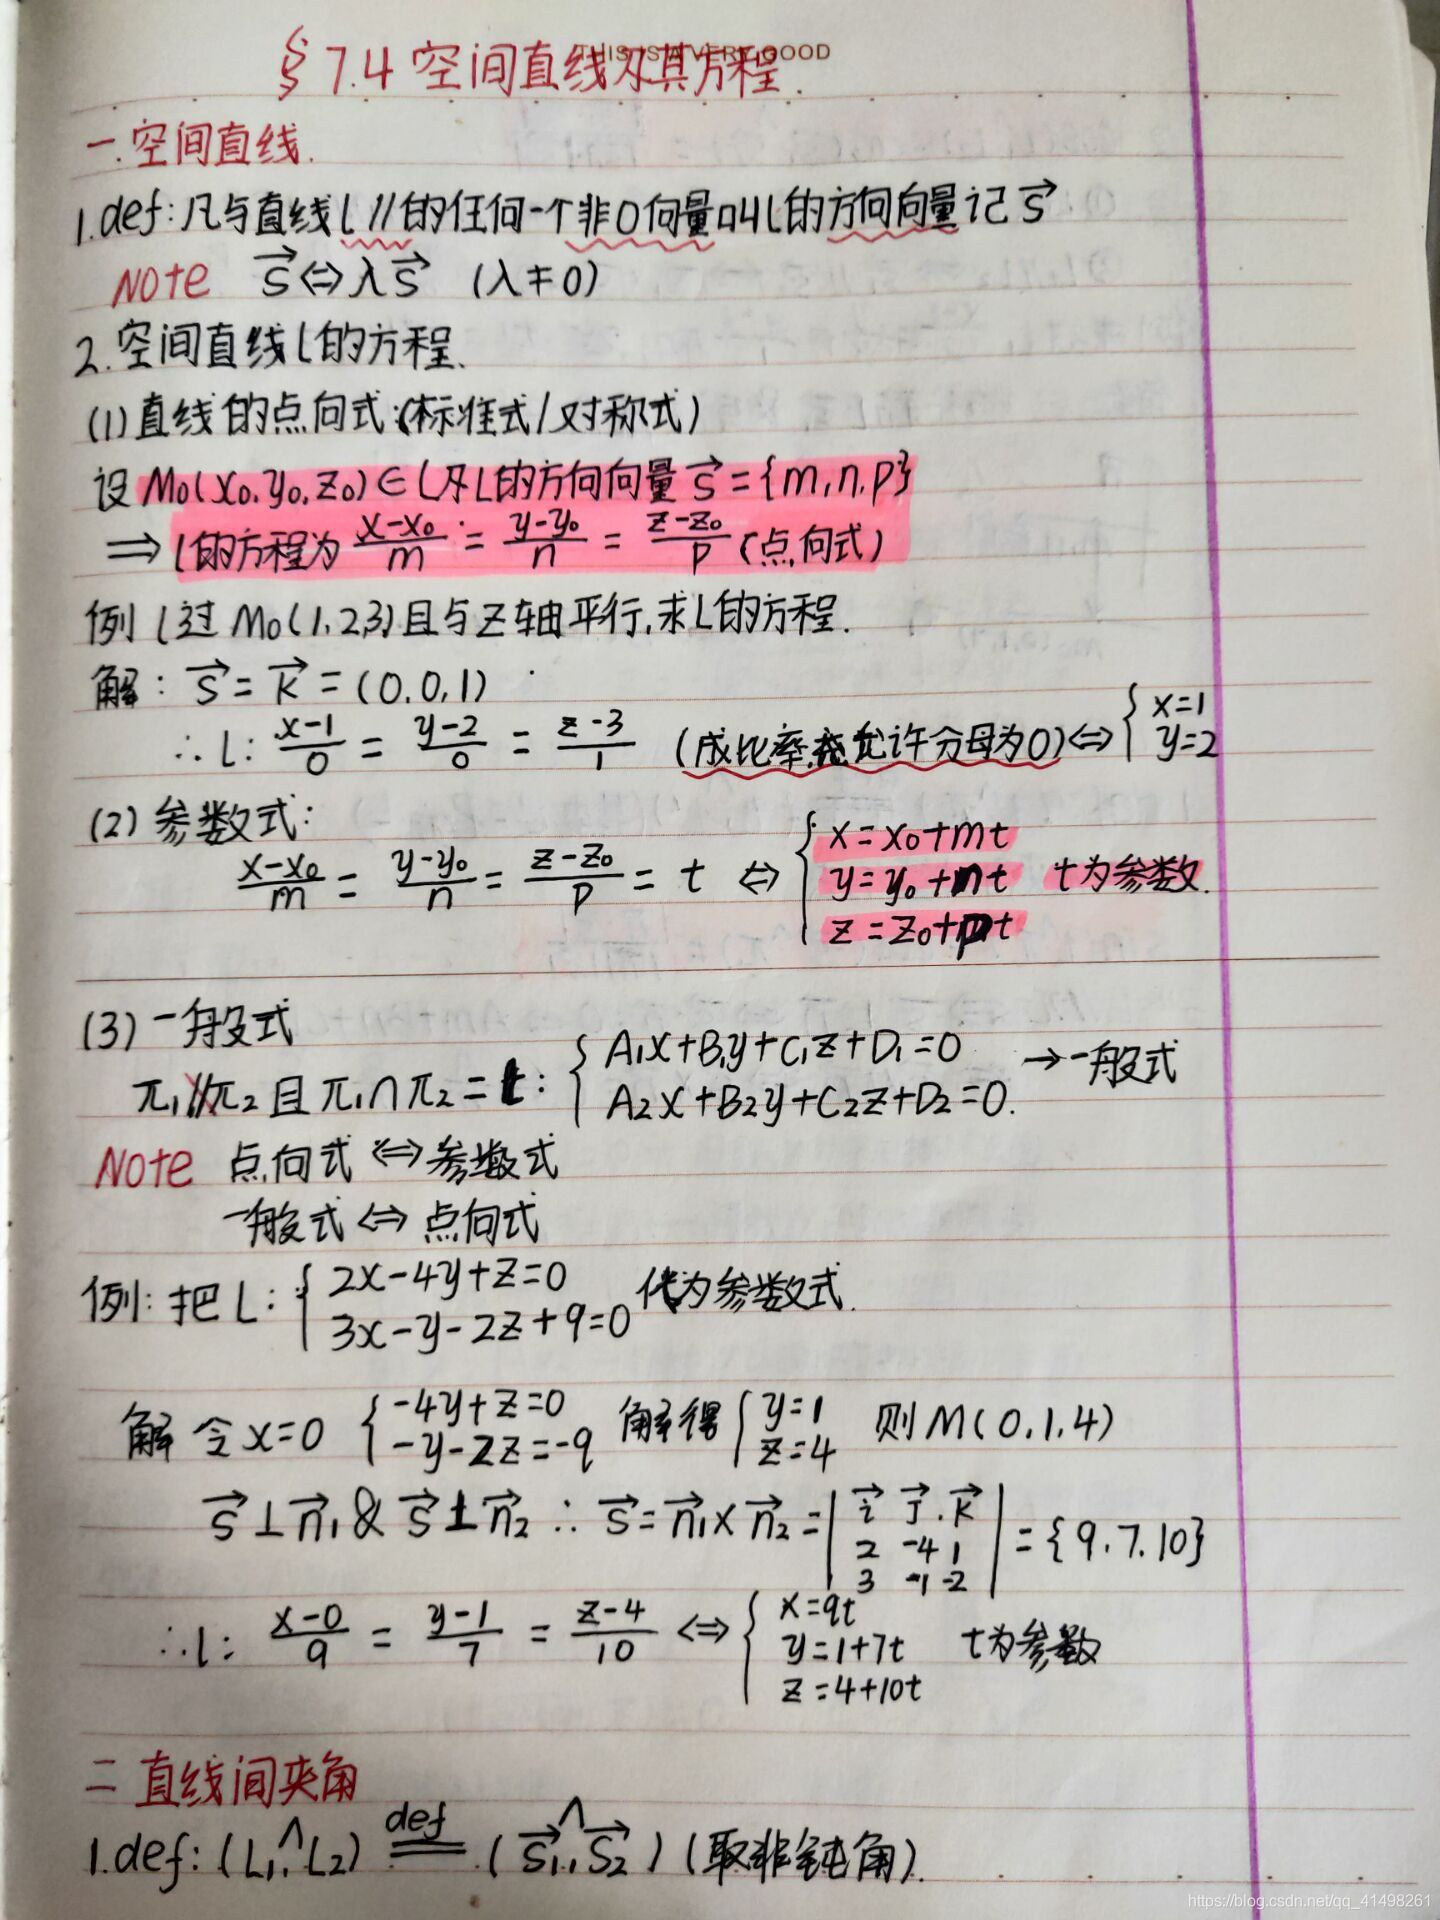 THIS IS A VERY GOOD
§7.4 空间直线及其方程.
一.空间直线.
1.def:凡与直线L//的任何一个非0向量叫L的方向向量记s⃗
Note s⃗⇔λs⃗ (λ≠0)
2.空间直线L的方程.
(1)直线的点向式:(标准式/对称式)
设M₀(x₀,y₀,z₀)∈L及L的方向向量s⃗={m,n,p}
⇒L的方程为 (x-x₀)/m = (y-y₀)/n = (z-z₀)/p (点向式)
例 L过M₀(1,2,3)且与Z轴平行,求L的方程.
解: s⃗=k⃗=(0,0,1)
∴L: (x-1)/0 = (y-2)/0 = (z-3)/1 (成比率允许分母为0)⇔{x=1 y=2
(2)参数式:
(x-x₀)/m = (y-y₀)/n = (z-z₀)/p = t ⇔ {x=x₀+mt y=y₀+nt z=z₀+pt t为参数.
(3)一般式
π₁∦π₂且π₁∩π₂=L: {A₁x+B₁y+C₁z+D₁=0 A₂x+B₂y+C₂z+D₂=0. →一般式
Note 点向式⇔参数式
一般式⇔点向式
例:把L: {2x-4y+z=0 3x-y-2z+9=0 化为参数式.
解 令x=0 {-4y+z=0 -y-2z=-9 解得{y=1 z=4 则M(0,1,4)
s⃗⊥n⃗₁&s⃗⊥n⃗₂ ∴ s⃗=n⃗₁×n⃗₂=|i⃗ j⃗ k⃗ 2 -4 1 3 -1 -2|={9,7,10}
∴L: (x-0)/9 = (y-1)/7 = (z-4)/10 ⇔ {x=9t y=1+7t z=4+10t t为参数
二 直线间夹角
1.def:(L₁,^L₂) def== (s⃗₁,^s⃗₂)(取非钝角).
https://blog.csdn.net/qq_41498261